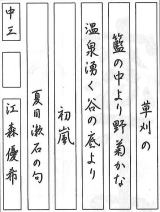 草刈の
籃の中より野菊かな
温泉湧く谷の底より
初嵐
夏目漱石の句
中三 江森優希